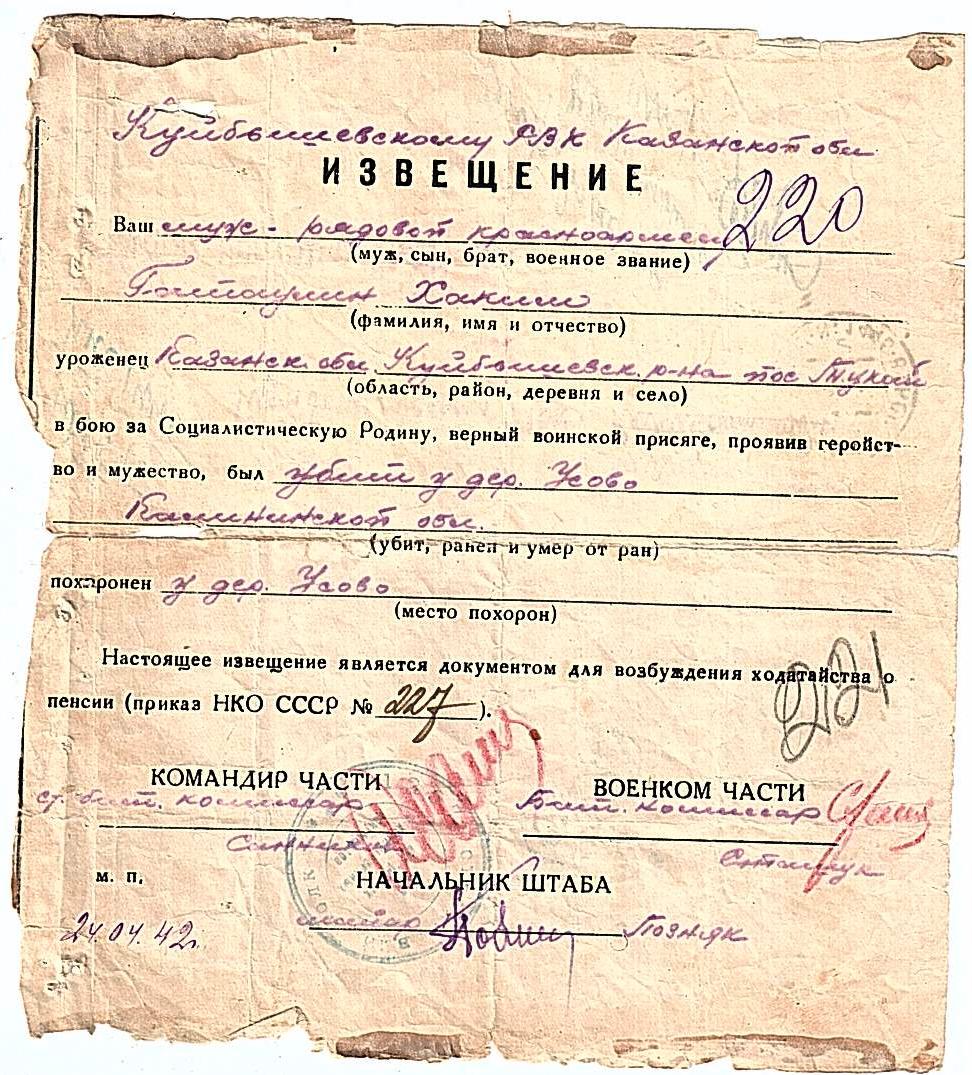 Куйбышевскому РВК Казанской обл
ИЗВЕЩЕНИЕ
220
Ваш муж - рядовой красноармеец
(муж, сын, брат, военное звание)
Гатаулин Хаким
(фамилия, имя и отчество)
уроженец Казанск. обл. Куйбышевск. р-на пос Тукай
(область, район, деревня и село)
в бою за Социалистическую Родину, верный воинской присяге, проявив геройст-
во и мужество, был убит у дер. Усово
Калининской обл.
(убит, ранен и умер от ран)
похоронен у дер. Усово
(место похорон)
Настоящее извещение является документом для возбуждения ходатайства о
пенсии (приказ НКО СССР № 227).
221
КОМАНДИР ЧАСТИ ВОЕНКОМ ЧАСТИ
ст. бат. комиссар Бат. комиссар
Сташук
м. п. НАЧАЛЬНИК ШТАБА
24.04.42г. майор Позняк